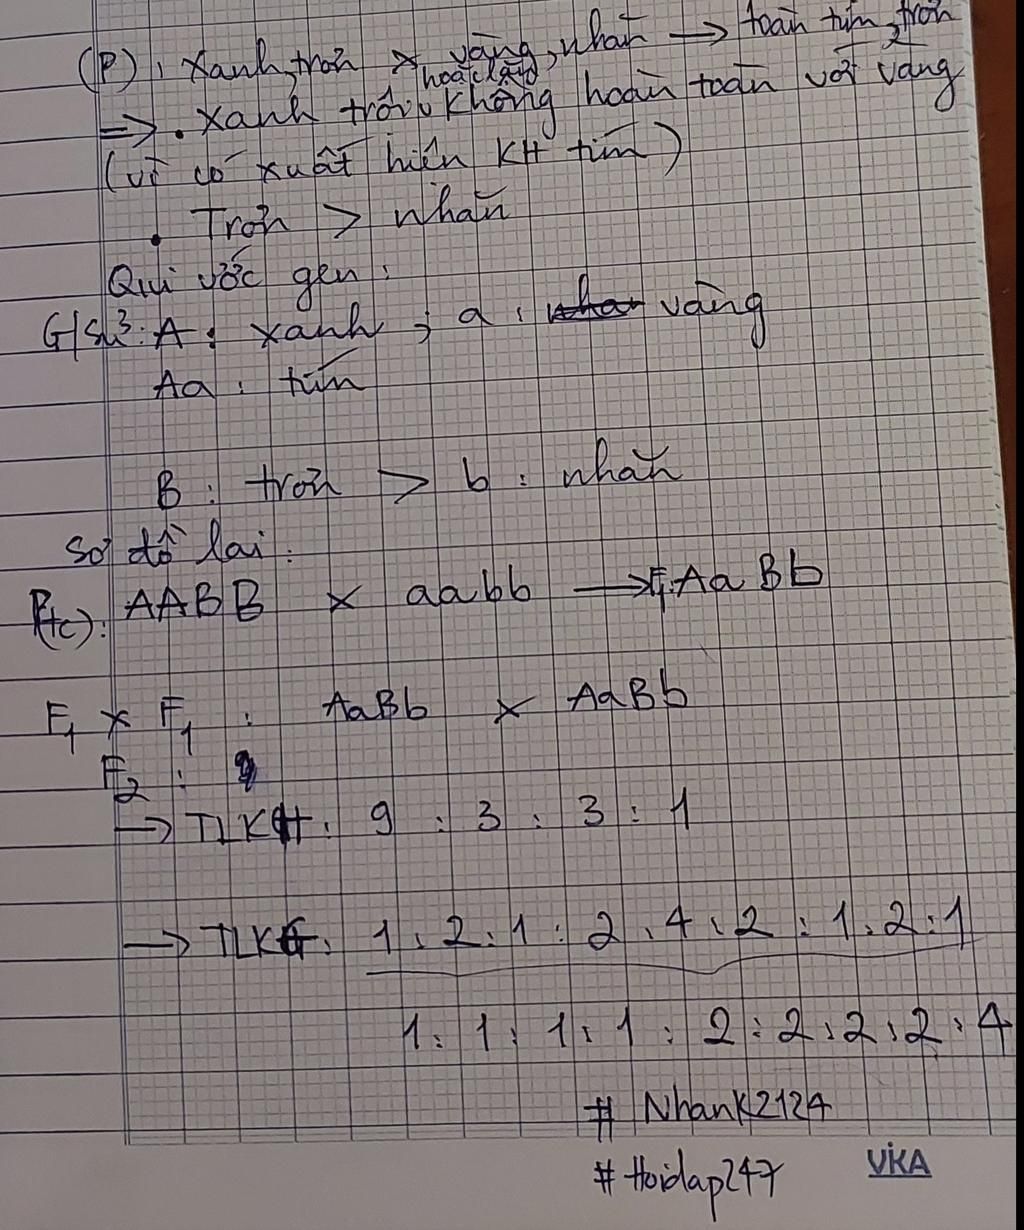 (P): Xanh, trơn × vàng, nhăn → toàn tím, trơn
hoặc lặn
=> . Xanh trội không hoàn toàn với vàng
(vì có xuất hiện KH tím)
. Trơn > nhăn
Qui ước gen:
G/sử: A: xanh ; a: vàng
Aa: tím
B: trơn > b: nhăn
Sơ đồ lai:
P(tc): AABB × aabb → F1: AaBb
F1 × F1 : AaBb × AaBb
F2 :
→ TLKH: 9 : 3 : 3 : 1
→ TLKG: 1:2:1:2:4:2:1:2:1
1:1:1:1:2:2:2:2:4
# NhanK2124
# Hoidap247
VIKA